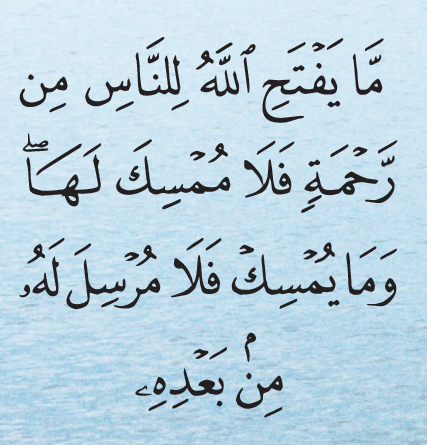 مَّا يَفۡتَحِ ٱللَّهُ لِلنَّاسِ مِن
رَّحۡمَةٖ فَلَا مُمۡسِكَ لَهَاۖ
وَمَا يُمۡسِكۡ فَلَا مُرۡسِلَ لَهُۥ
مِنۢ بَعۡدِهِۦ